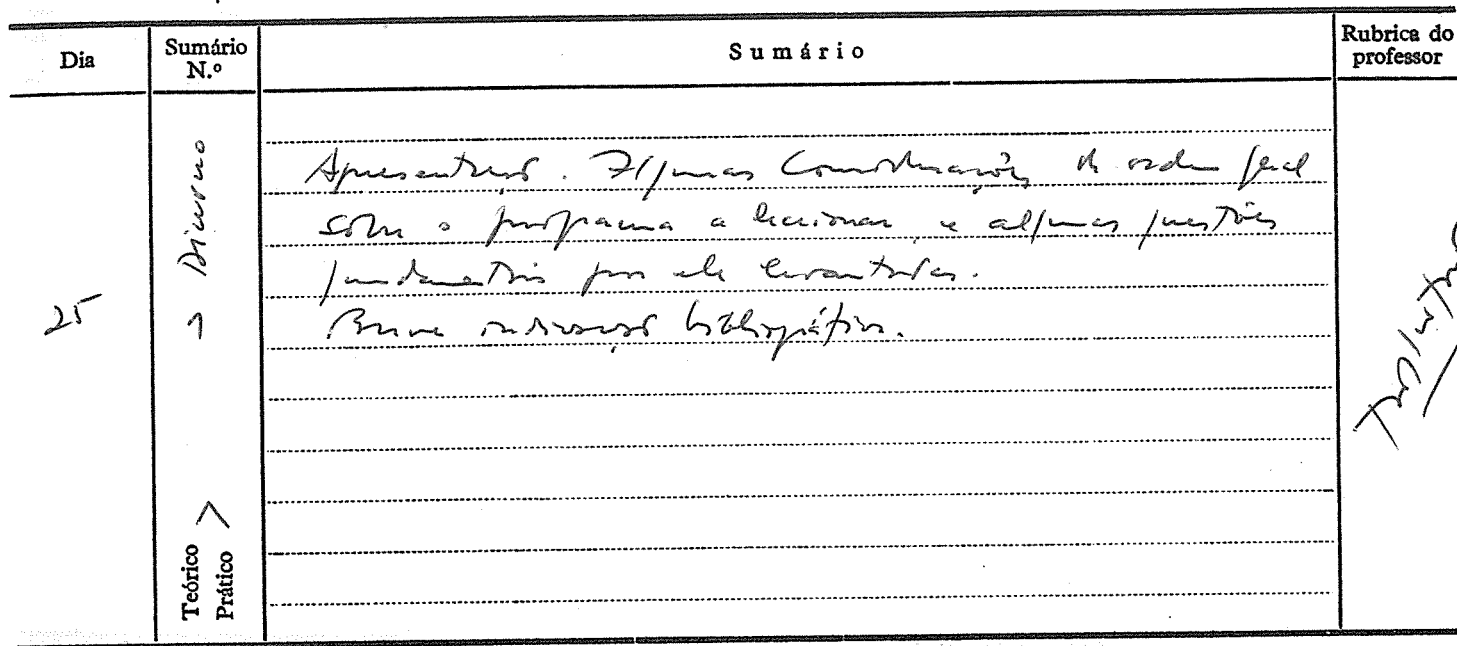 Dia
Sumário N.º
Sumário
Rubrica do professor
25
1 Diurno
Teórico
Prático
Apresentação. Algumas considerações de ordem geral
sobre o programa a leccionar, e algumas questões
fundamentais por ele levantadas.
Breve indicação bibliográfica.